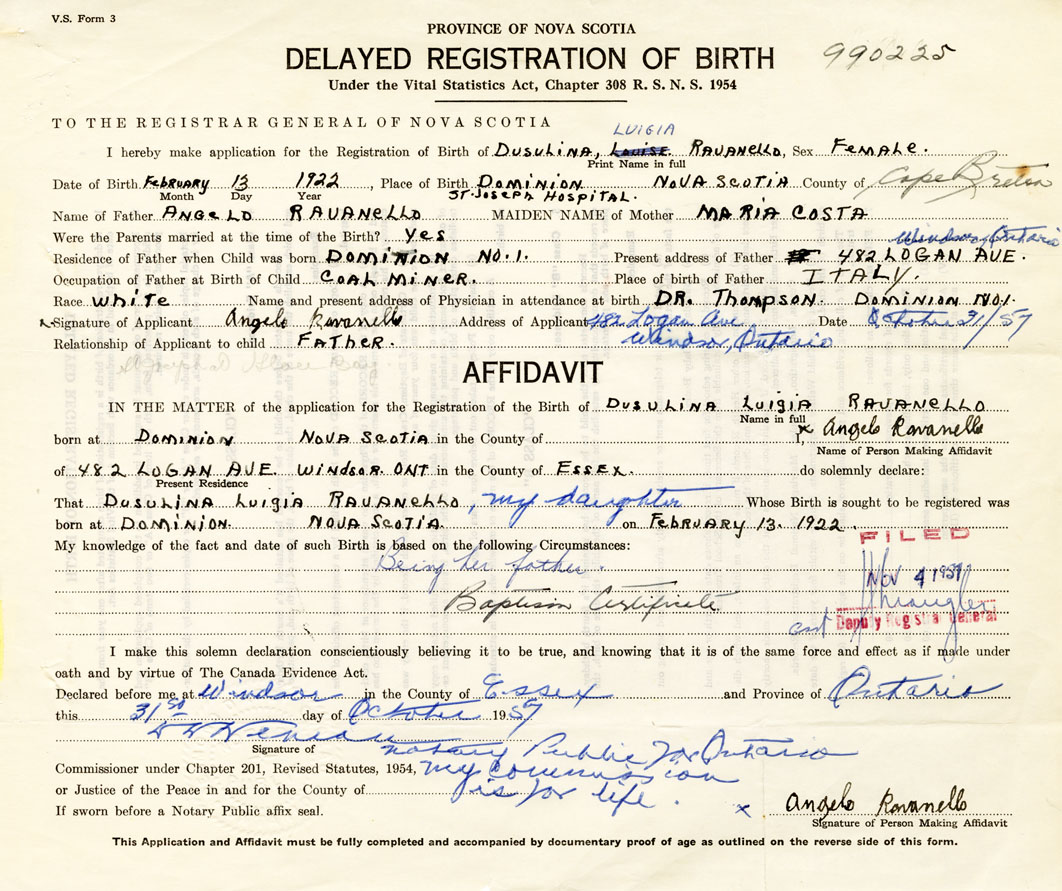 V.S. Form 3
PROVINCE OF NOVA SCOTIA
DELAYED REGISTRATION OF BIRTH
990225
Under the Vital Statistics Act, Chapter 308 R. S. N. S. 1954
TO THE REGISTRAR GENERAL OF NOVA SCOTIA
LUIGIA
I hereby make application for the Registration of Birth of DUSULINA, Louise RAVANELLO, Sex FEMALE.
Print Name in full
Date of Birth FEBRUARY 13 1922, Place of Birth DOMINION NOVA SCOTIA County of Cape Breton
Month Day Year ST. JOSEPH HOSPITAL.
Name of Father ANGELO RAVANELLO MAIDEN NAME of Mother MARIA COSTA
Were the Parents married at the time of the Birth? YES Windsor, Ontario
Residence of Father when Child was born DOMINION NO.1. Present address of Father 482 LOGAN AVE.
Occupation of Father at Birth of Child COAL MINER. Place of birth of Father ITALY.
Race WHITE Name and present address of Physician in attendance at birth DR. THOMPSON. DOMINION NO1.
Signature of Applicant Angelo Ravanello Address of Applicant 482 Logan Ave Date October 31/57
Windsor, Ontario
Relationship of Applicant to child FATHER.
AFFIDAVIT
IN THE MATTER of the application for the Registration of the Birth of DUSULINA LUIGIA RAVANELLO
Name in full
born at DOMINION NOVA SCOTIA in the County of I, x Angelo Ravanello
Name of Person Making Affidavit
of 482 LOGAN AVE WINDSOR. ONT in the County of ESSEX. do solemnly declare:
Present Residence
That DUSULINA LUIGIA RAVANELLO, my daughter Whose Birth is sought to be registered was
born at DOMINION. NOVA SCOTIA. on FEBRUARY 13. 1922.
FILED
My knowledge of the fact and date of such Birth is based on the following Circumstances:
Being her father.
NOV 4 1957
Baptism Certificate
Deputy Registrar General
I make this solemn declaration conscientiously believing it to be true, and knowing that it is of the same force and effect as if made under
oath and by virtue of The Canada Evidence Act.
Declared before me at Windsor in the County of Essex and Province of Ontario
this 31st day of October 1957
Signature of Notary Public for Ontario
Commissioner under Chapter 201, Revised Statutes, 1954, My commission
or Justice of the Peace in and for the County of is for life.
If sworn before a Notary Public affix seal. x Angelo Ravanello
Signature of Person Making Affidavit
This Application and Affidavit must be fully completed and accompanied by documentary proof of age as outlined on the reverse side of this form.